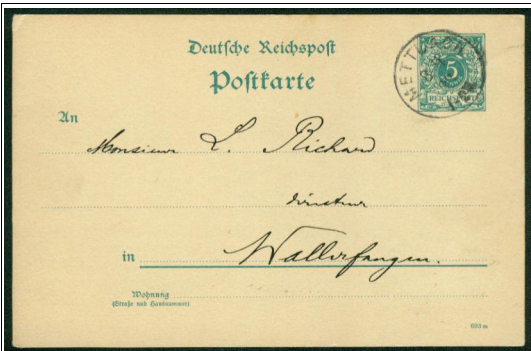 Deutsche Reichspost
Postkarte
METTLACH
5
REICHSPOST
An
Monsieur L. Richard
directeur
in Wallerfangen.
Wohnung
(Straße und Hausnummer)